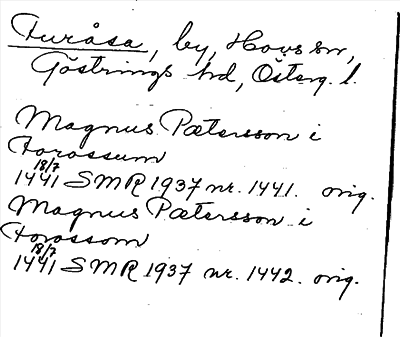 Furåsa, by, Hovs sn,
Göstrings hd, Österg. l.
Magnus Pætersson i
Forossum
18/7
1441 SMR 1937 nr. 1441. orig.
Magnus Pætersson i
Forossom
18/7
1441 SMR 1937 nr. 1442. orig.